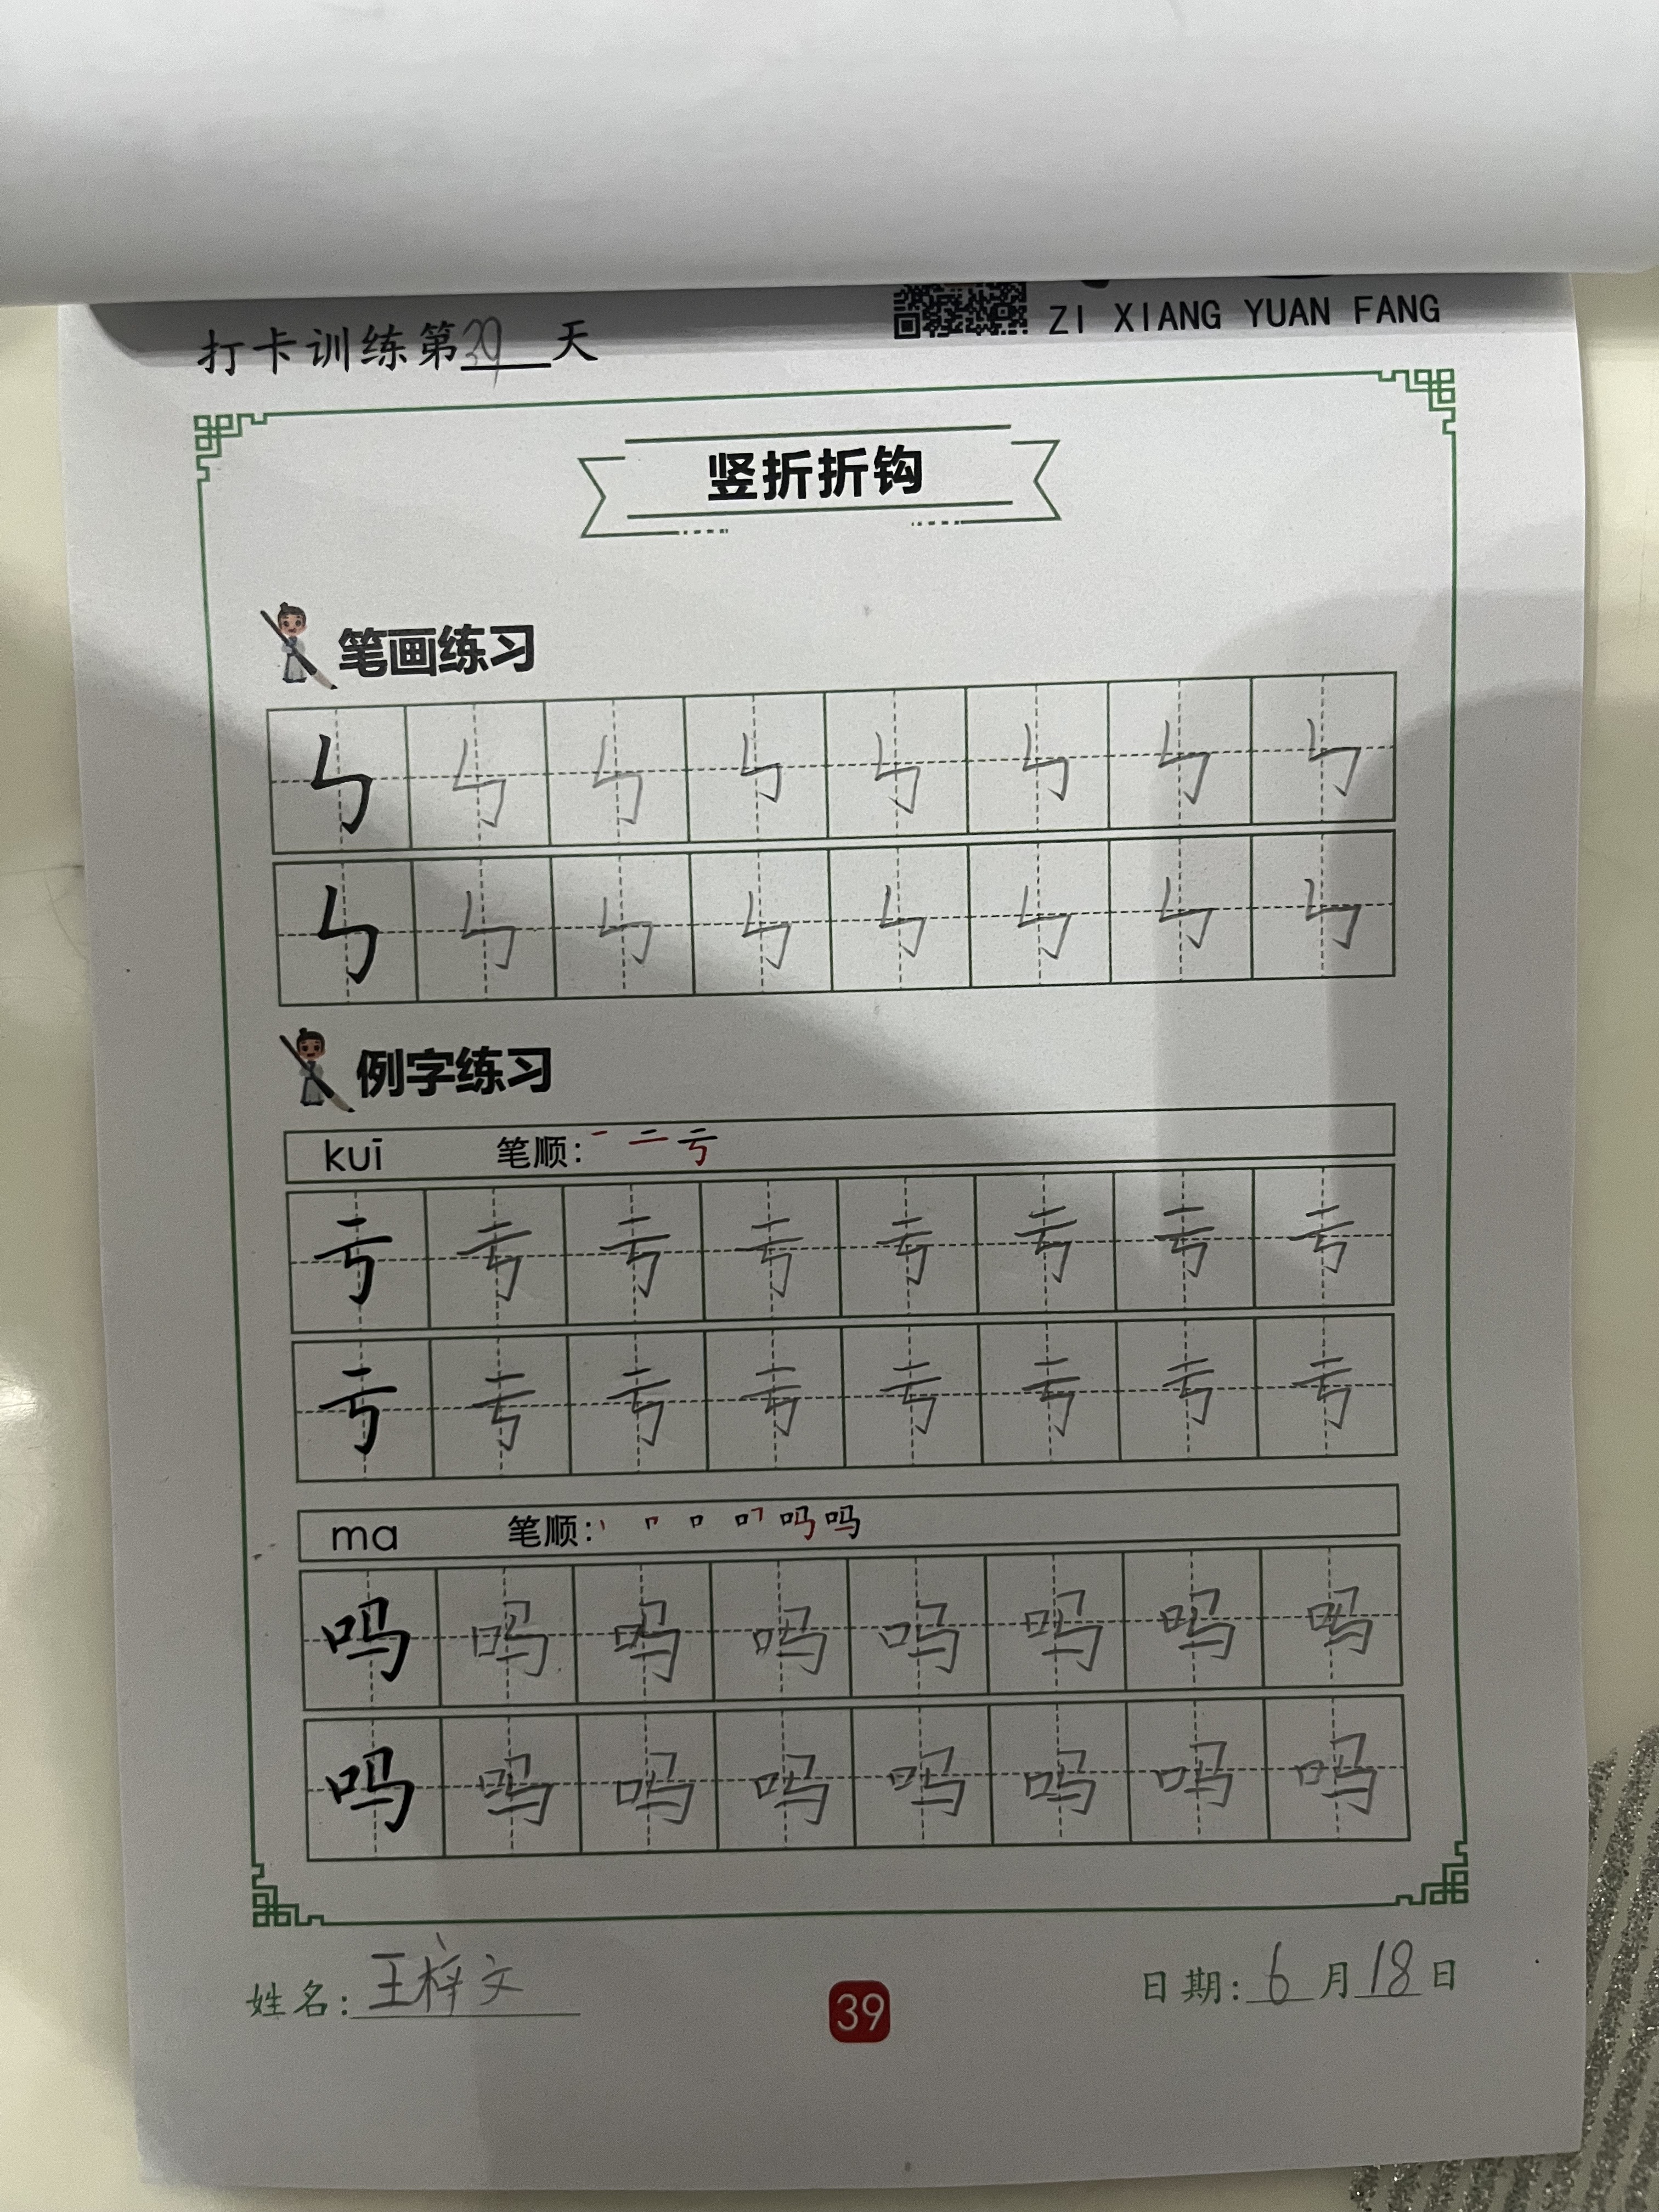 打卡训练第39天
ZI XIANG YUAN FANG
竖折折钩
笔画练习
㇉ ㇉ ㇉ ㇉ ㇉ ㇉ ㇉ ㇉
㇉ ㇉ ㇉ ㇉ ㇉ ㇉ ㇉ ㇉
例字练习
kuī 笔顺: 一 二 亏
亏 亏 亏 亏 亏 亏 亏 亏
亏 亏 亏 亏 亏 亏 亏 亏
ma 笔顺:
吗 吗 吗 吗 吗 吗 吗 吗
吗 吗 吗 吗 吗 吗 吗 吗
姓名: 王梓文
39
日期: 6月18日